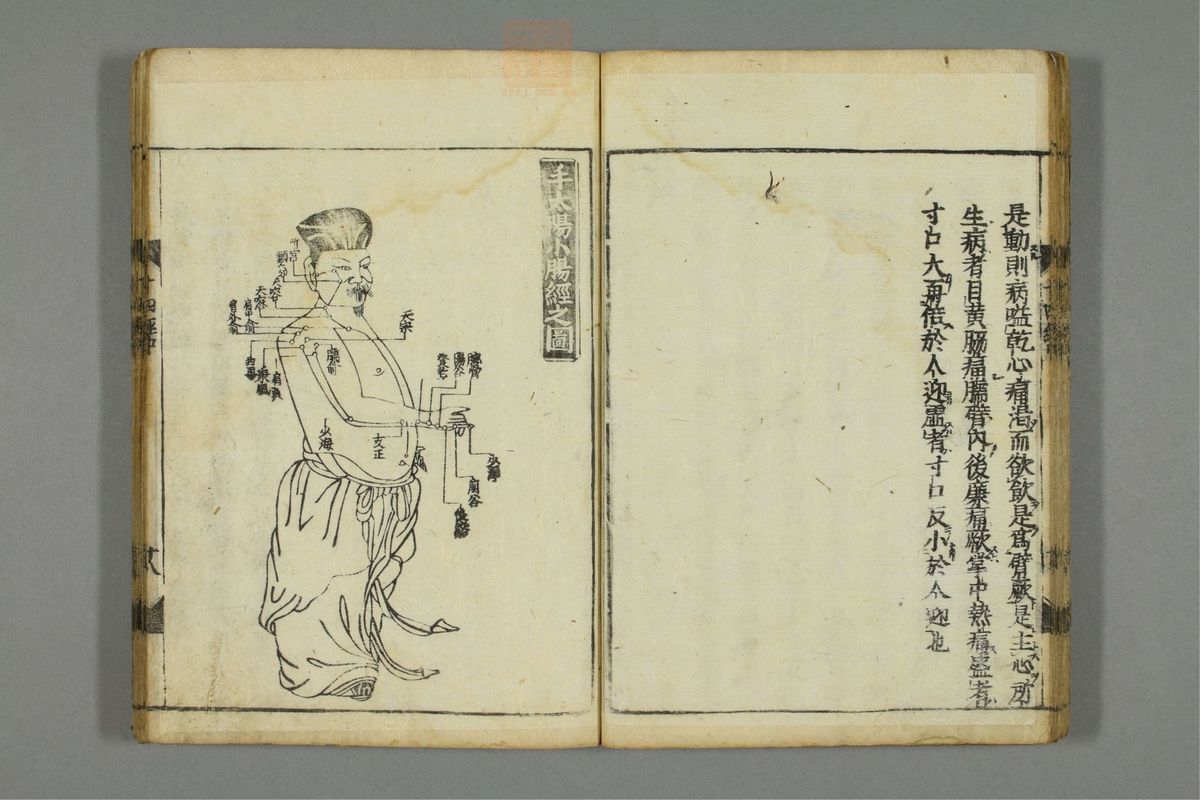 是動則病嗌乾心痛渴而欲飲是爲臂厥是主心所
生病者目黄脇痛臑臂內後廉痛厥掌中熱痛盛者
寸口大再倍於人迎虛者寸口反小於人迎也
手太陽小腸經之圖
天宗
腕骨
陽谷
養老
少澤
前谷
後谿
支正
少海
臑俞
肩貞
秉風
曲垣
肩中俞
肩外俞
天容
天窓
顴窌
聽宮
十四經中
zysj.com.cn